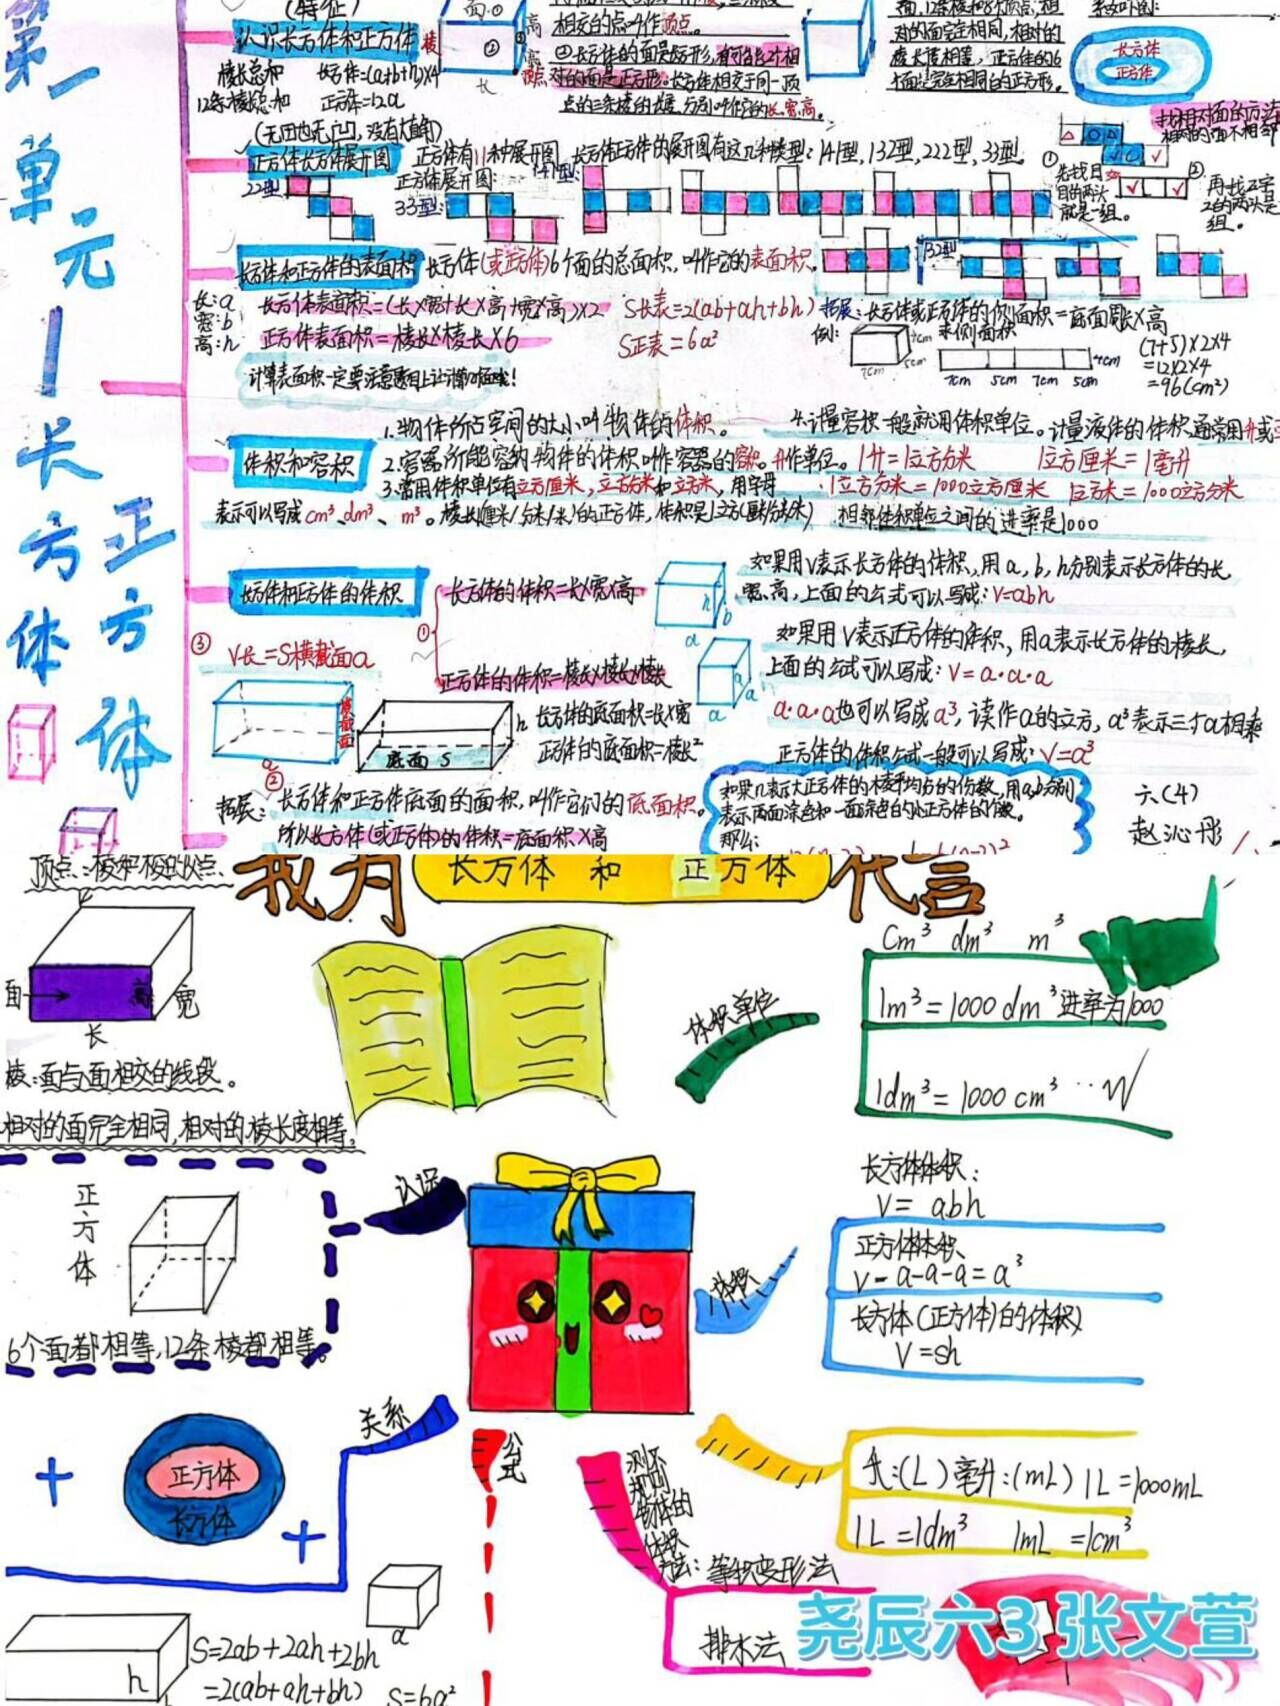 第一单元—长方体
正方体
(特征)
认识长方体和正方体
棱长总和 长方体=(a+b+h)×4
12条棱总和 正方体=12a
面:①
高
②
③
长
相交的点叫作顶点。
②长方体的面是长方形,有可能有2个相
对的面是正方形。长方体相交于同一顶
点的三条棱的长度,分别叫作它的长、宽、高。
面,12条棱和8个顶点,相
对的面完全相同,相对的
棱长度相等,正方体的6
个面是完全相同的正方形。
长方体
正方体
正方体长方体展开图
正方体有11种展开图,长方体正方体的展开图有这几种模型:141型,132型,222型,33型。
正方体展开图:
141型:
33型:
132型
找相对面的方法
相对的面不相邻
①
先找目
目的两头
就是一组。
②
再找Z字
Z的两头是一
组。
长方体和正方体的表面积
长方体(或正方体)6个面的总面积,叫作它的表面积。
长:a
宽:b
高:h
长方体表面积=(长×宽+长×高+宽×高)×2 S长表=2(ab+ah+bh)
正方体表面积=棱长×棱长×6 S正表=6a²
拓展:长方体或正方体的侧面积=底面周长×高
例: 求侧面积
7cm 5cm 7cm 5cm
4cm
(7+5)×2×4
=12×2×4
=96(cm²)
体积和容积
1.物体所占空间的大小叫物体的体积。
2.容器所能容纳物体的体积叫作容器的容积。
3.常用体积单位有立方厘米,立方分米和立方米,用字母
表示可以写成cm³、dm³、m³。
4.计量容积一般就用体积单位。计量液体的体积,通常用升或
作单位。1升=1立方分米 1立方厘米=1毫升
1立方分米=1000立方厘米 1立方米=1000立方分米
相邻体积单位之间的进率是1000
长方体和正方体的体积
①
长方体的体积=长×宽×高
正方体的体积=棱长×棱长×棱长
h
b
a
如果用V表示长方体的体积,用a,b,h分别表示长方体的长、
宽、高,上面的公式可以写成:V=abh
如果用V表示正方体的体积,用a表示长方体的棱长,
上面的公式可以写成:V=a·a·a
a·a·a也可以写成a³,读作a的立方,a³表示三个a相乘
正方体的体积公式一般可以写成:V=a³
③ V长=S横截面a
横截面
a
②
底面 S
h
长方体的底面积=长×宽
正方体的底面积=棱长²
拓展:长方体和正方体底面的面积,叫作它们的底面积。
所以长方体(或正方体)的体积=底面积×高
如果n表示大正方体的棱平均分的份数,用a,b分别
表示两面涂色和一面涂色的小正方体的个数。
那么:
六(4)
赵沁彤
我为 长方体 和 正方体 代言
顶点:棱和棱的交点
面
高
宽
长
棱:面与面相交的线段。
相对的面完全相同,相对的棱长度相等。
正方体
6个面都相等,12条棱都相等。
认识
体积单位
cm³ dm³ m³
1m³=1000dm³进率为1000
1dm³=1000cm³
体积
长方体体积:
V=abh
正方体体积
V=a-a-a=a³
长方体(正方体)的体积
V=sh
关系
正方体
长方体
公式
h
a
S=2ab+2ah+2bh
=2(ab+ah+bh)
S=6a²
方法:等积变形法
排水法
升:(L) 毫升:(mL) 1L=1000mL
1L=1dm³ 1mL=1cm³
尧辰六3 张文萱